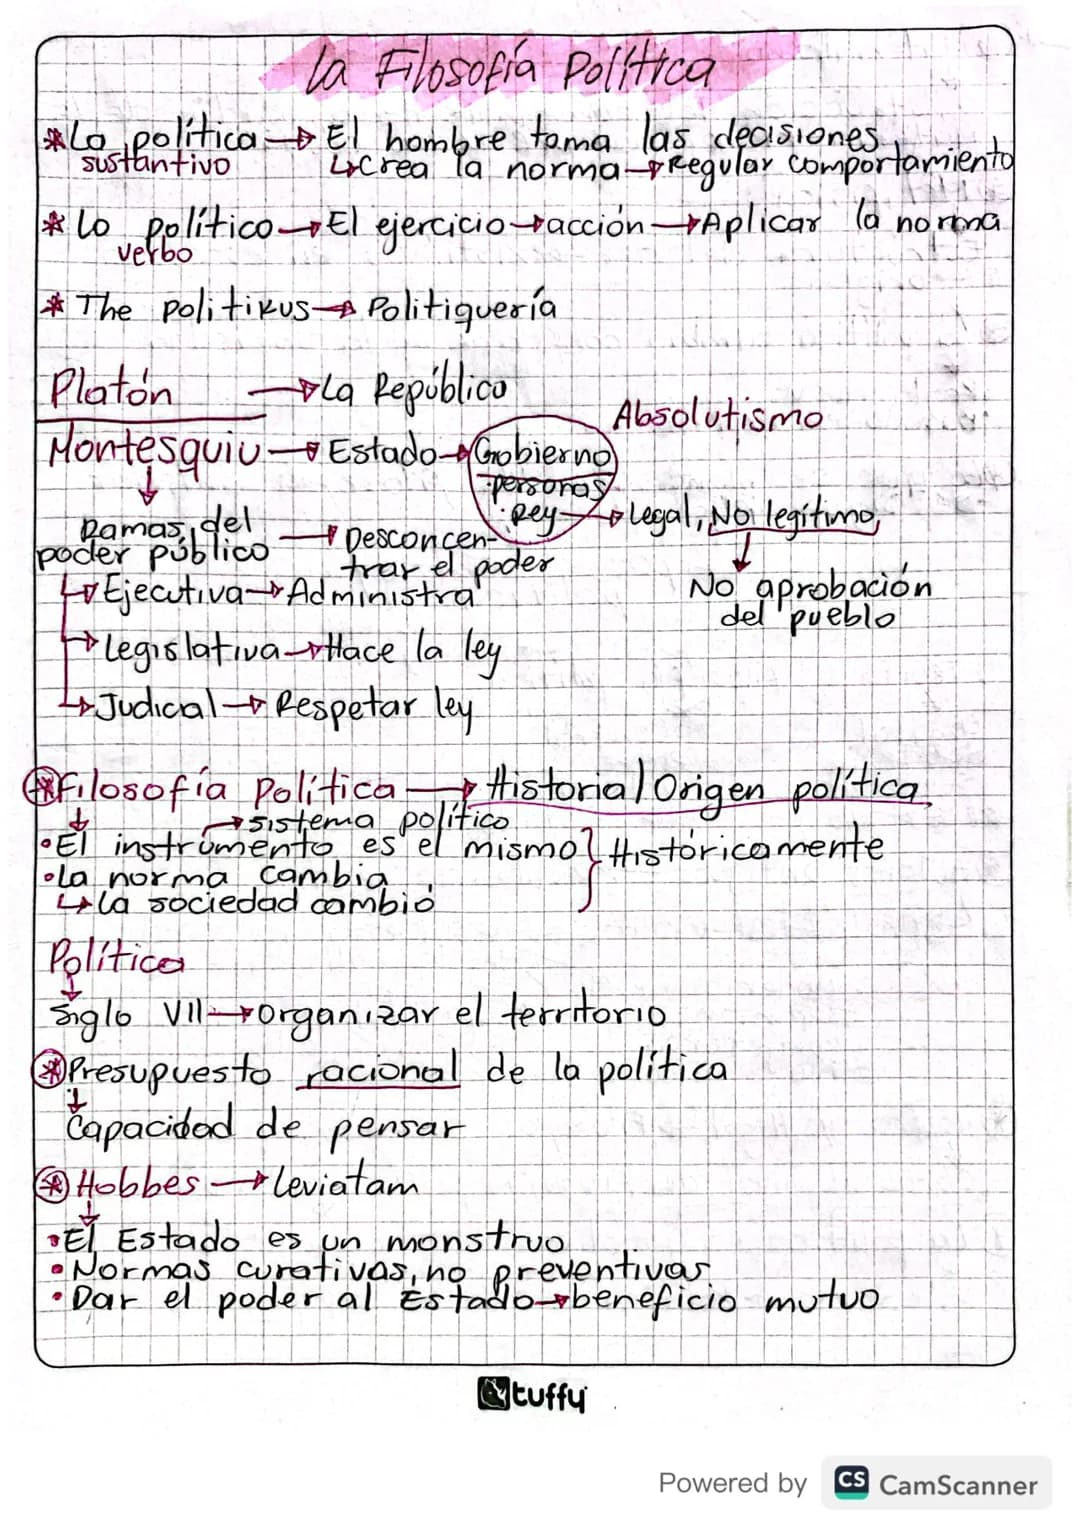 La Filosofía Política
*La política → El hombre toma las decisiones
sustantivo ↳Crea la norma → Regular comportamiento
* Lo político → El ejercicio → acción → Aplicar la norma
verbo
* The politikus → Politiquería
Platón → La República
Absolutismo
Montesquiu → Estado → Gobierno
personas
Rey → Legal, No legítimo,
Ramas del → Desconcen-
poder público trar el poder
No aprobación
del pueblo
↳ Ejecutiva → Administra
→ Legislativa → Hace la ley
↳ Judicial → Respetar ley
*Filosofía Política → Historia/Origen política
→ sistema político
• El instrumento es el mismo } Históricamente
• La norma cambia
↳ La sociedad cambió
Política
Siglo VII → organizar el territorio
*Presupuesto racional de la política
Capacidad de pensar
* Hobbes → Leviatam
• El Estado es un monstruo
• Normas curativas, no preventivas
• Dar el poder al Estado → beneficio mutuo
tuffy
Powered by CS CamScanner